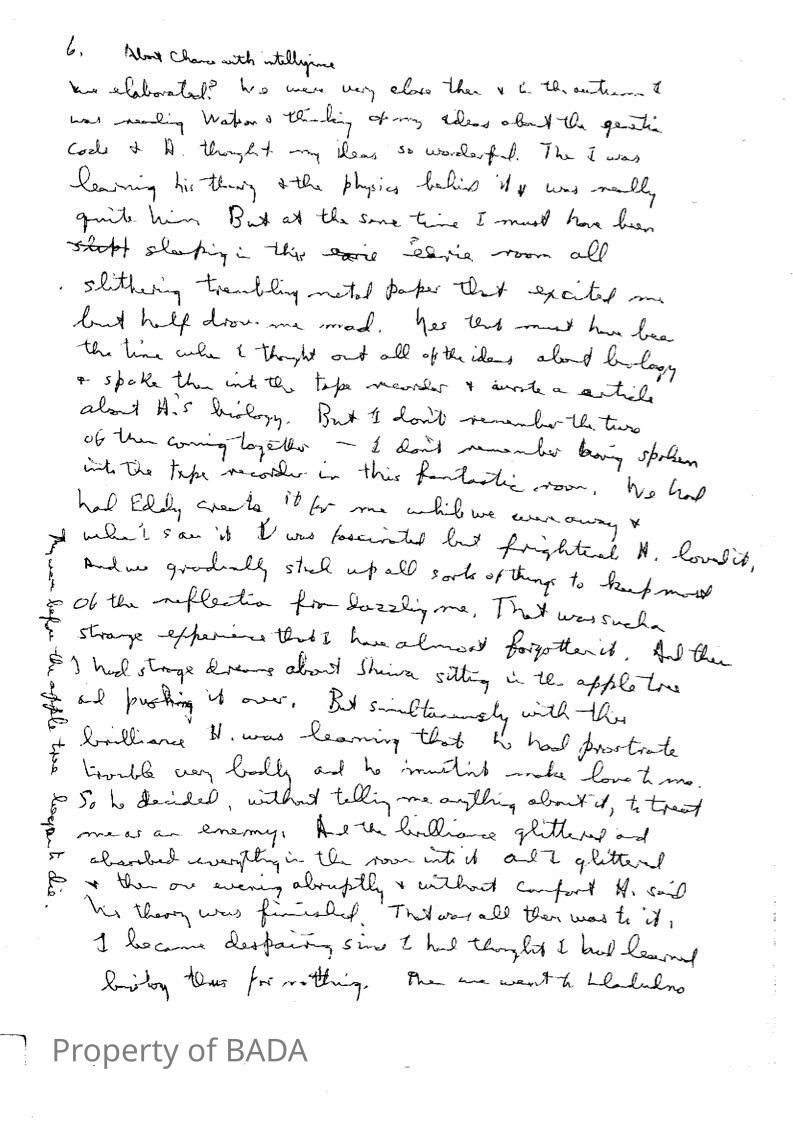 6. About Chance with intelligence
we elaborated? We were very close then & in the autumn I
was reading Watson & thinking of my ideas about the genetic
Code & H. thought my ideas so wonderful. The I was
learning his theory & the physics behind it & was really
quite him But at the same time I must have been
slept sleeping in this eerie eerie room all
slithering trembling metal paper that excited me
but half drove me mad. Yes that must have been
the time when I thought out all of the ideas about biology
& spoke them into the tape recorder & wrote a article
about H.'s biology. But I don't remember the two
of them coming together — I don't remember having spoken
into the tape recorder in this fantastic room. We had
had Eddy create it for me while we were away &
when I saw it I was fascinated but frightened H. loved it,
And we gradually stuck up all sorts of things to keep most
of the reflection from dazzling me. That was such a
strange experience that I have almost forgotten it. And then
I had strange dreams about Shiva sitting in the apple tree
and pushing it over. But simultaneously with this
brilliance H. was learning that he had prostrate
trouble very badly and he mustn't make love to me.
So he decided, without telling me anything about it, to treat
me as an enemy. And the brilliance glittered and
absorbed everything in the room into it and I glittered
& then one evening abruptly & without comfort H. said
his theory was finished. That was all there was to it,
I became despairing since I had thought I had learned
biology thus for nothing. Then we went to Lladudno
They were before the apple tree began to die.
Property of BADA